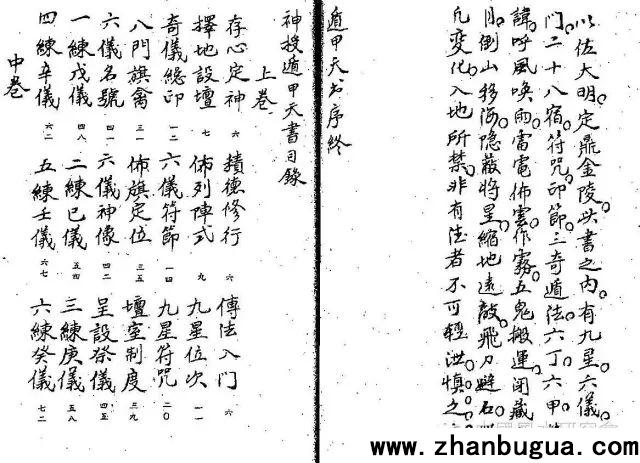 以佐大明。定鼎金陵。此書之內。有九星六儀。
門。二十八宿。符咒印節。三奇遁法。六丁六甲
諱。呼風喚雨。雷電佈雲。作霧。五鬼搬運。閉藏
月。倒山移海。隐蔽將星。縮地遠敵。飛刀避石
凡變化。入地所禁。非有法者不可輕洩慎之
遁甲天書序終
神授遁甲天書目錄
上卷
存心定神 六 積德修行 六 傳法入門 六
擇地設壇 七 佈列陣式 九 九星位次 一一
奇儀總印 一二 六儀符節 一四 九星符咒 二〇
八門旗禽 三一 佈旗定位 三五 壇室制度 三九
六儀名號 四一 六儀神像 四二 呈設祭儀 四五
一練戊儀 四八 二練己儀 五四 三練庚儀 五八
四練辛儀 六二 五練壬儀 六七 六練癸儀 七二
中卷
www.zhanbugua.com